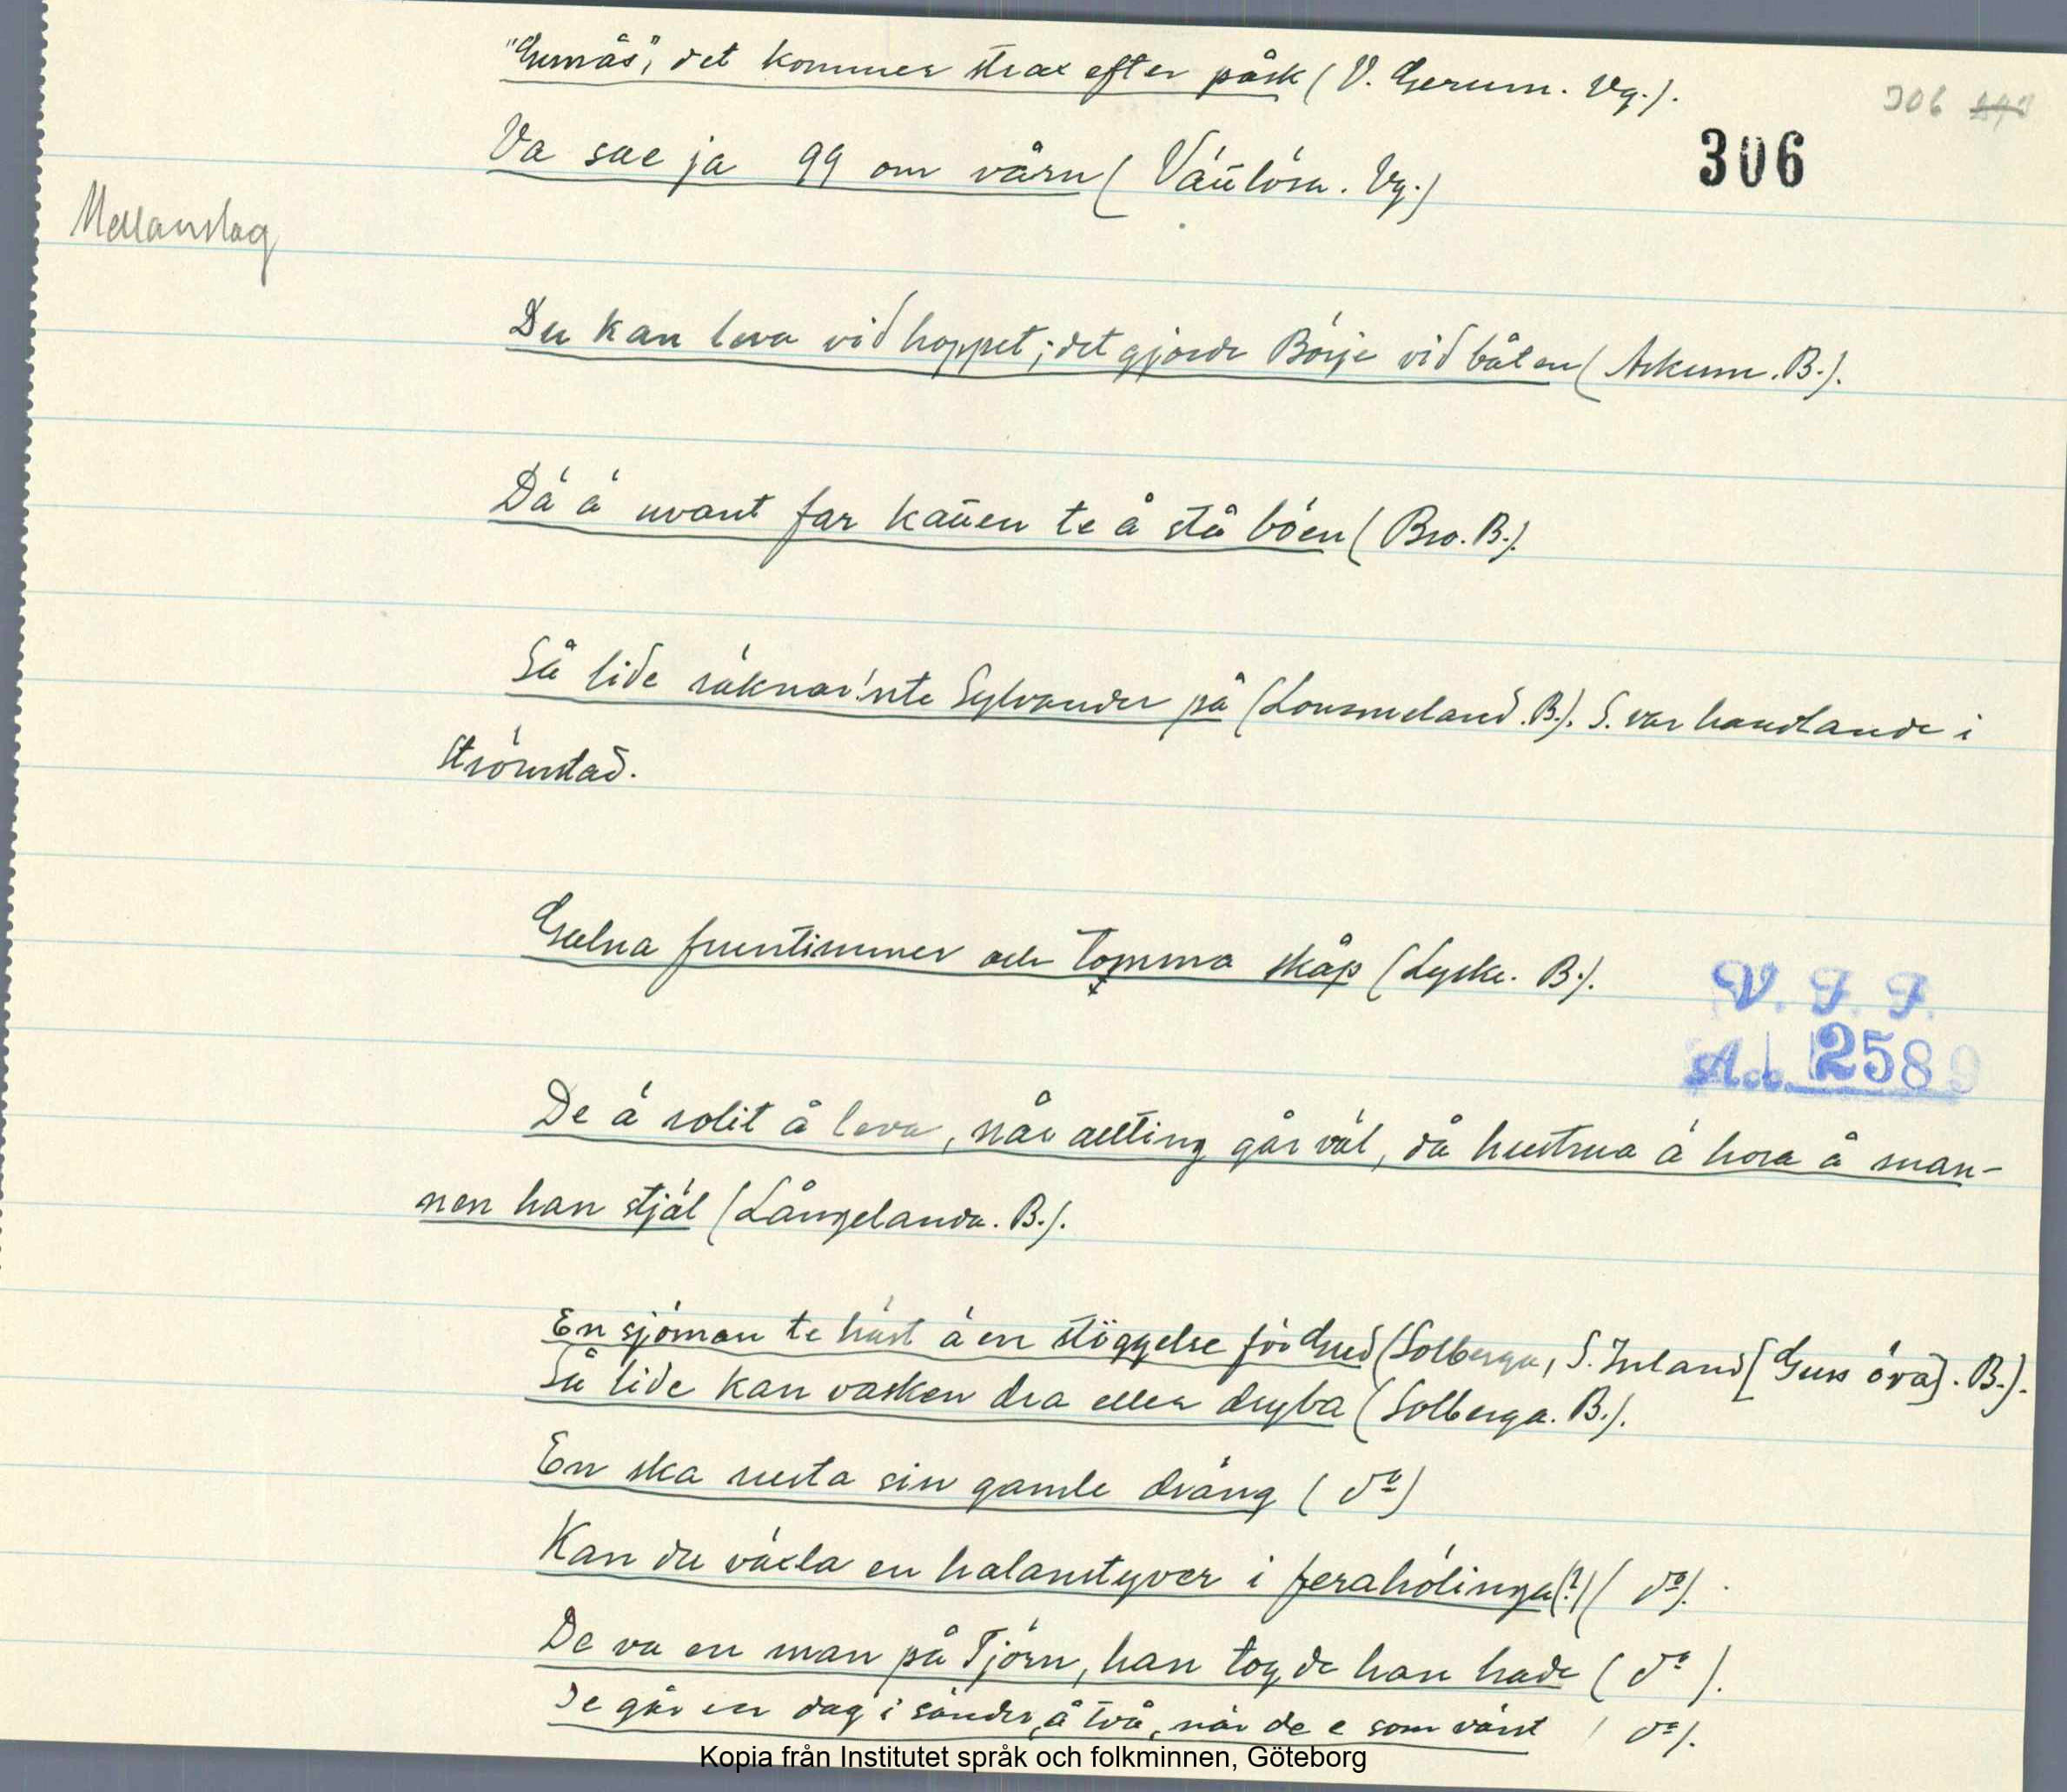 "Gumås", det kommer strax efter påsk (V. Gerum. Vg.).
306
Va sae ja 99 om vårn (Vänlösa. Vg.)
306
Mellanslag
Du kan leva vid hoppet; det gjorde Börje vid båten (Askum. B.).
Dä ä uvant far katten te å stå böen (Bro. B.).
Så lide räknar'nte Sylvander på (Lommeland. B.). S. var handlande i
Strömstad.
Galna fruntimmer och tomma skåp (Lyske. B.).
V. F. F.
Acc. 2589
De ä rolit å leva, når allting går väl, då hustrua ä hora å man-
nen han stjäl (Långelanda. B.).
En sjöman te häst ä en stöggelse för Gud (Solberga, S. Inland [Guss öra]. B.).
Så lide kan vasken dra eller dryba (Solberga. B.).
En ska rusta sin gamle dräng (do)
Kan du växla en halanstyver i ferahölinga(?) (do).
De va en man på Tjörn, han tog de han hade (do).
De går en dag i sänder, å två, når de e som värst (do).
Kopia från Institutet språk och folkminnen, Göteborg